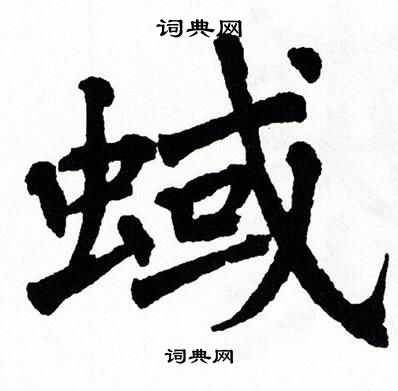 词典网
蜮
词典网